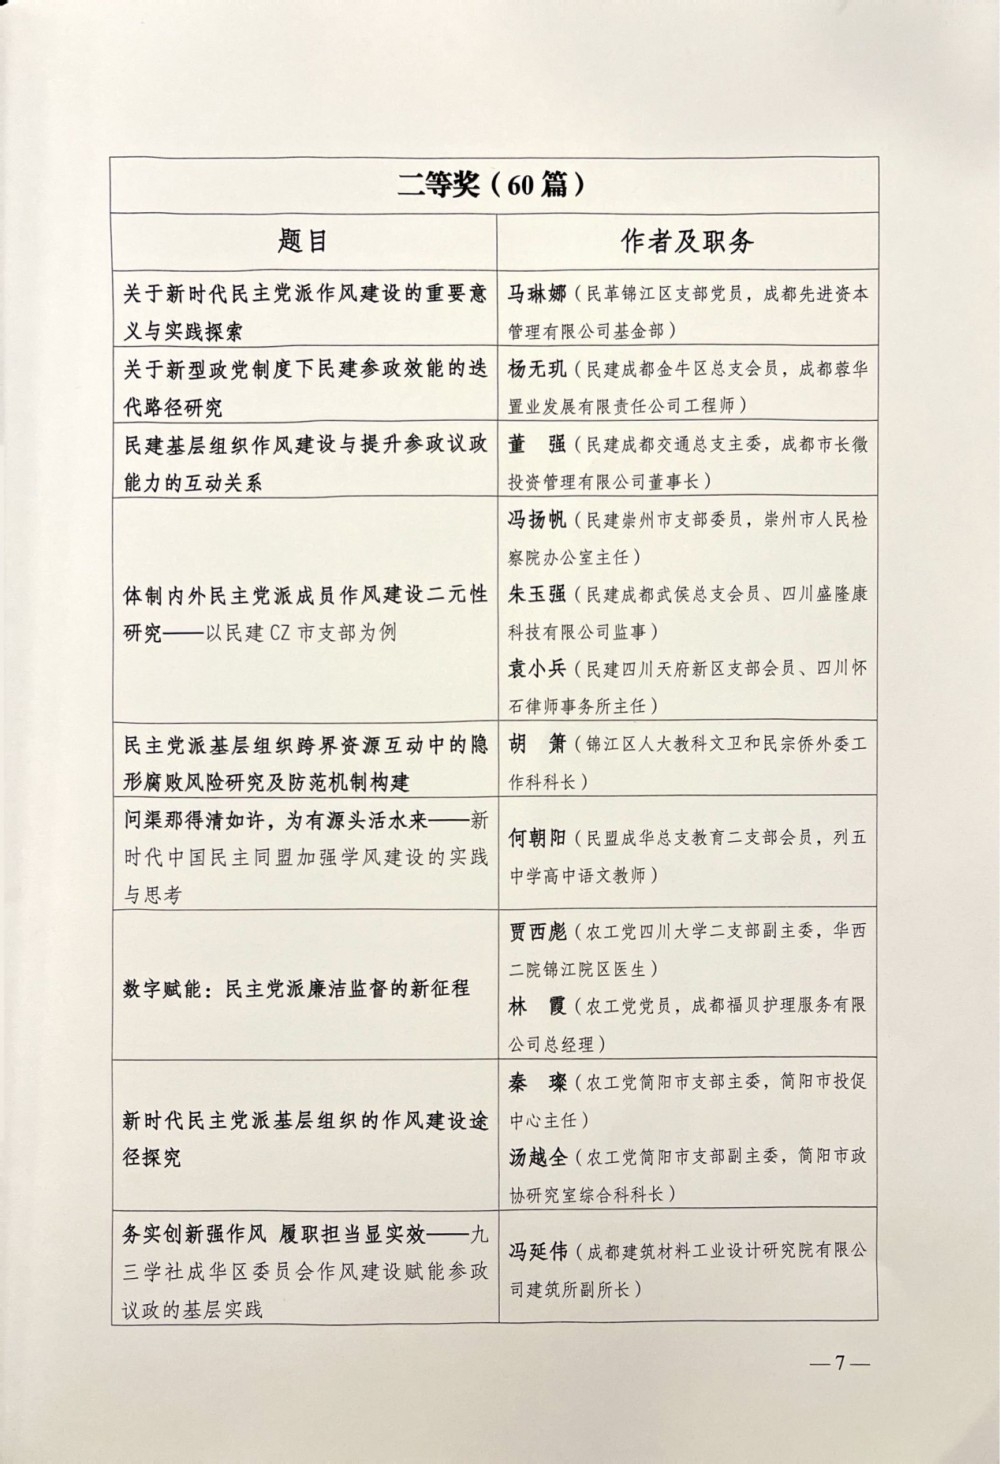 二等奖（60 篇）
题目
作者及职务
关于新时代民主党派作风建设的重要意
义与实践探索
马琳娜（民革锦江区支部党员，成都先进资本
管理有限公司基金部）
关于新型政党制度下民建参政效能的迭
代路径研究
杨无玑（民建成都金牛区总支会员，成都蓉华
置业发展有限责任公司工程师）
民建基层组织作风建设与提升参政议政
能力的互动关系
董　强（民建成都交通总支主委，成都市长徵
投资管理有限公司董事长）
体制内外民主党派成员作风建设二元性
研究——以民建 CZ 市支部为例
冯扬帆（民建崇州市支部委员，崇州市人民检
察院办公室主任）
朱玉强（民建成都武侯总支会员、四川盛隆康
科技有限公司监事）
袁小兵（民建四川天府新区支部会员、四川怀
石律师事务所主任）
民主党派基层组织跨界资源互动中的隐
形腐败风险研究及防范机制构建
胡　箫（锦江区人大教科文卫和民宗侨外委工
作科科长）
问渠那得清如许，为有源头活水来——新
时代中国民主同盟加强学风建设的实践
与思考
何朝阳（民盟成华总支教育二支部会员，列五
中学高中语文教师）
数字赋能：民主党派廉洁监督的新征程
贾西彪（农工党四川大学二支部副主委，华西
二院锦江院区医生）
林　霞（农工党党员，成都福贝护理服务有限
公司总经理）
新时代民主党派基层组织的作风建设途
径探究
秦　璨（农工党简阳市支部主委，简阳市投促
中心主任）
汤越全（农工党简阳市支部副主委，简阳市政
协研究室综合科科长）
务实创新强作风 履职担当显实效——九
三学社成华区委员会作风建设赋能参政
议政的基层实践
冯延伟（成都建筑材料工业设计研究院有限公
司建筑所副所长）
—7—